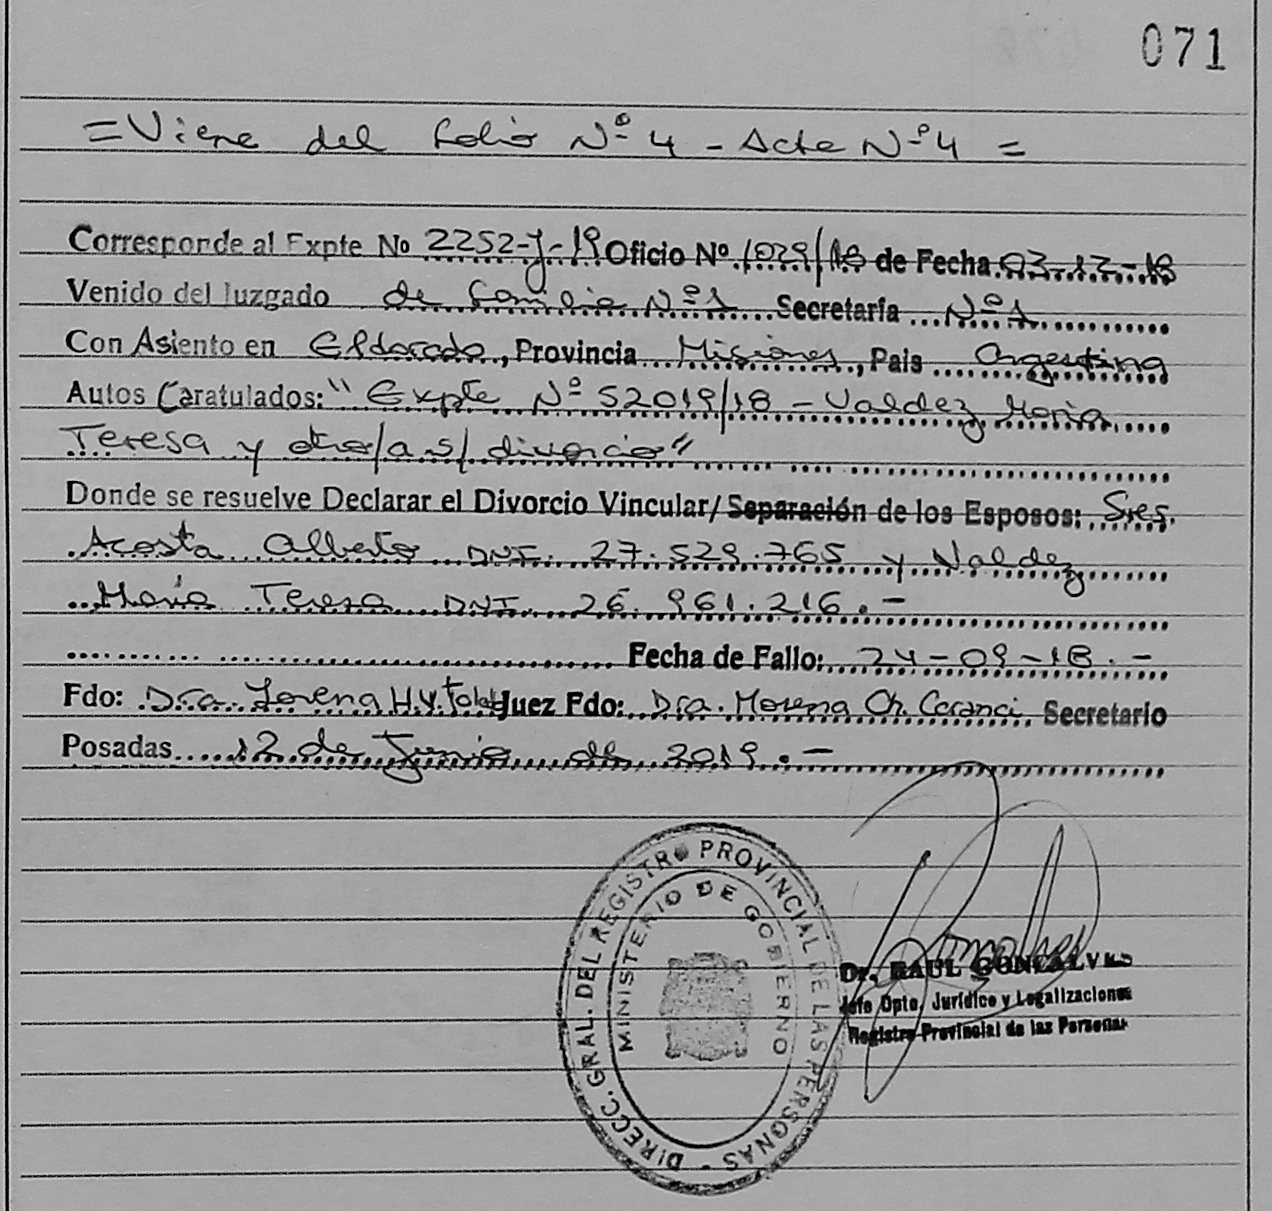 071
= Viene del folio Nº 4 - Acta Nº 4 =
Corresponde al Expte No 2252-J-19 Oficio Nº 1029/18 de Fecha 03-12-18
Venido del Juzgado de Familia Nº 1 Secretaría Nº 1
Con Asiento en Eldorado, Provincia Misiones, Pais Argentina
Autos Caratulados: "Expte Nº 52019/18 - Valdez María
Teresa y otro/a s/ divorcio"
Donde se resuelve Declarar el Divorcio Vincular/ Separación de los Esposos: Sres.
Acosta Alberto DNI. 27.529.765 y Valdez
María Teresa DNI. 26.961.216.-
Fecha de Fallo: 24-09-18.-
Fdo: Dra. Lorena H.V. Juez Fdo: Dra. Morena Ch. Caranci. Secretario
Posadas 12 de Junio de 2019.-
DIRECC. GRAL. DEL REGISTRO PROVINCIAL DE LAS PERSONAS -
MINISTERIO DE GOBIERNO
Dr. RAUL GONCALVES
Jefe Dpto. Jurídico y Legalizaciones
Registro Provincial de las Personas